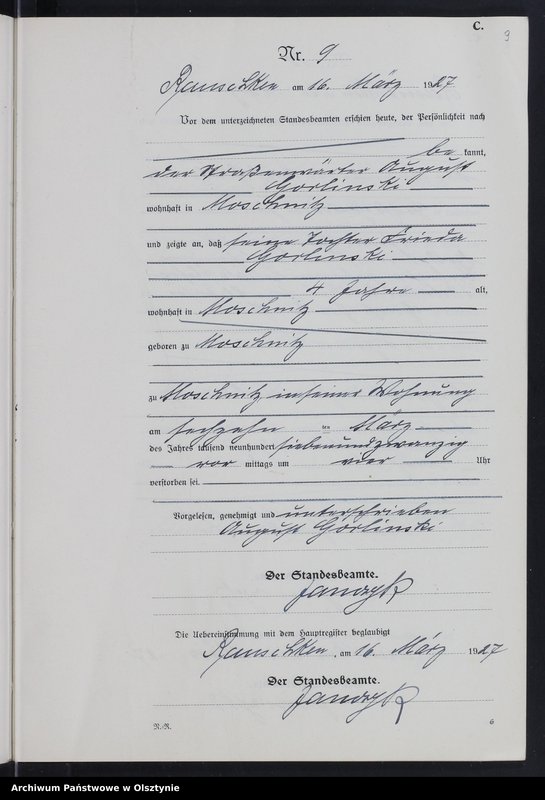 C.
9
Nr. 9
Rauschken am 16. März 1927
Vor dem unterzeichneten Standesbeamten erschien heute, der Persönlichkeit nach
be kannt,
der Straßenwärter August
Gorlinski
wohnhaft in Moschnitz
und zeigte an, daß seine Tochter Frieda
Gorlinski
4 Jahre alt,
wohnhaft in Moschnitz
geboren zu Moschnitz
zu Moschnitz in seiner Wohnung
am sechzehn ten März
des Jahres tausend neunhundert siebenundzwanzig
vor mittags um vier Uhr
verstorben sei.
Vorgelesen, genehmigt und unterschrieben
August Gorlinski
Der Standesbeamte.
Die Uebereinstimmung mit dem Hauptregister beglaubigt
Rauschken, am 16. März 1927
Der Standesbeamte.
N.-R.
6
Archiwum Państwowe w Olsztynie